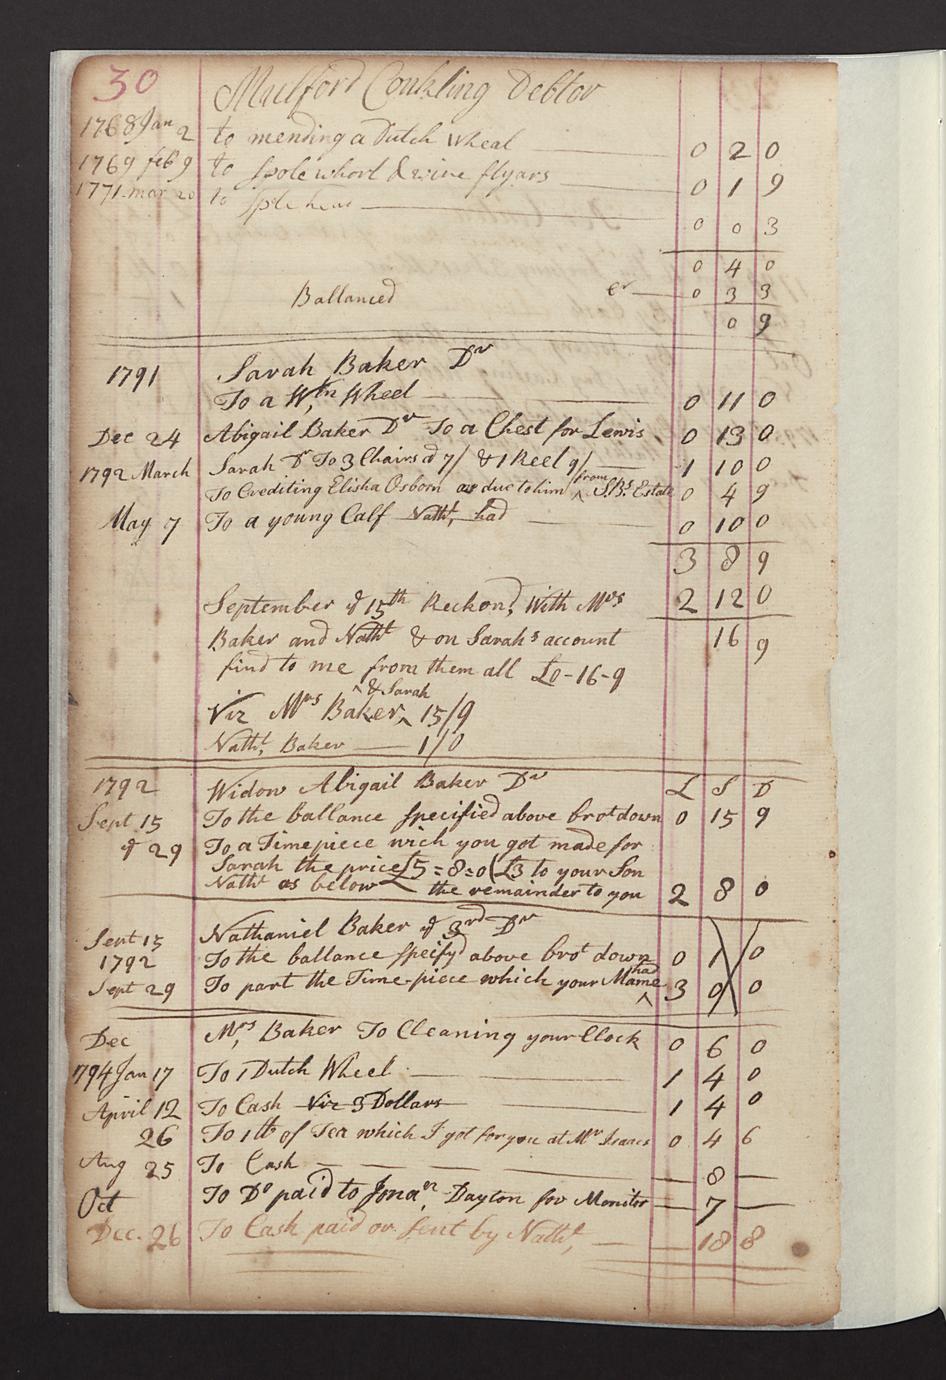 30 Mulford Conkling Debtor
1768 Jan 2 to mending a Dutch Wheal 0 2 0
1769 feb 9 to spole whorl & wire flyars 0 1 9
1771 mar 20 to 0 0 3
0 4 0
Ballanced cr 0 3 3
0 9
1791 Sarah Baker Dr
To a Wln Wheel 0 11 0
Dec 24 Abigail Baker Dr To a Chest for Lewis 0 13 0
1792 March Sarah Dr To 3 Chairs @ 7/ & 1 Reel 9/ 1 10 0
To Crediting Elisha Osborn as due to him ^from SBs Estate 0 4 9
May 7 To a young Calf Nathl, had 0 10 0
3 8 9
September ye 15th Reckond, With Mrs 2 12 0
Baker and Nathl & on Sarahs account 16 9
find to me from them all £0-16-9
& Sarah
Viz Mrs Baker ^ 15/9
Nathl, Baker 1/0
1792 Widow Abigail Baker Dr L S D
Sept 15 To the ballance specified above brot down 0 15 9
ye 29 To a Timepiece wich you got made for
Sarah the price £5=8=0 (£3 to your Son
Nathl as below the remainder to you 2 8 0
Sept 15 Nathaniel Baker ye 3rd Dr
1792 To the ballance specifyd above brot down 0 1 0
Sept 29 To part the Time-piece which your Mame ^had 3 0 0
Dec Mrs, Baker To Cleaning your Clock 0 6 0
1794 Jan 17 To 1 Dutch Wheel 1 4 0
April 12 To Cash Viz 3 Dollars 1 4 0
26 To 1 lb of Tea which I got for you at Mr Isaacs 0 4 6
Aug 25 To Cash — 8 —
Oct To Do paid to Jonan, Dayton for Monitor — 7 —
Dec. 26 To Cash paid or sent by Nathl, — 18 8